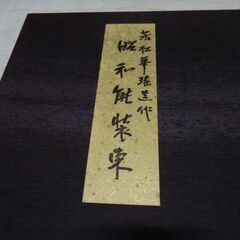 若松華瑤遺作
昭和能装束